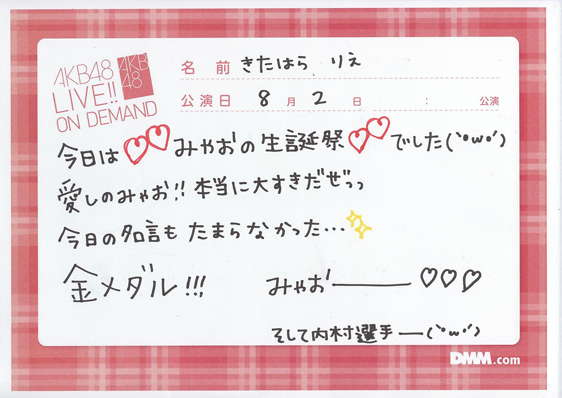 AKB48
LIVE!!
ON DEMAND
AKB
48
名前 きたはら りえ
公演日 8月2日 : 公演
今日は♡♡みゃおの生誕祭♡♡でした(`°ω°´)
愛しのみゃお!! 本当に大すきだぜっっ
今日の名言も たまらなかった…✨
金メダル!!! みゃお――― ♡♡♡
そして内村選手―(`°ω°´)
DMM.com